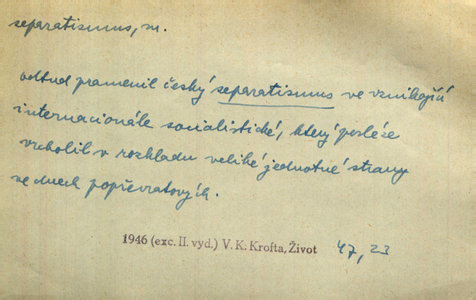 separatismus, m.
odtud pramenil český separatismus ve vznikající
internacionále socialistické, který posléze
vrcholil v rozkladu veliké jednotné strany
ve dnech popřevratových.
1946 (exc. II. vyd.) V. K. Krofta, Život 47, 23